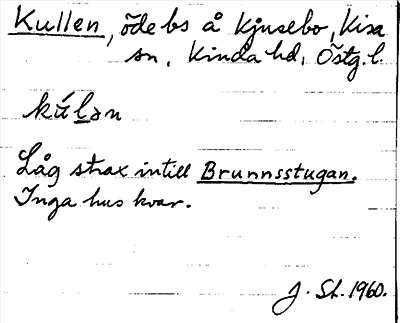 Kullen, öde bs å Kjusebo, Kisa
sn, Kinda hd, Östg. l.
kúlən
Låg strax intill Brunnsstugan.
Inga hus kvar.
J. Sh. 1960.